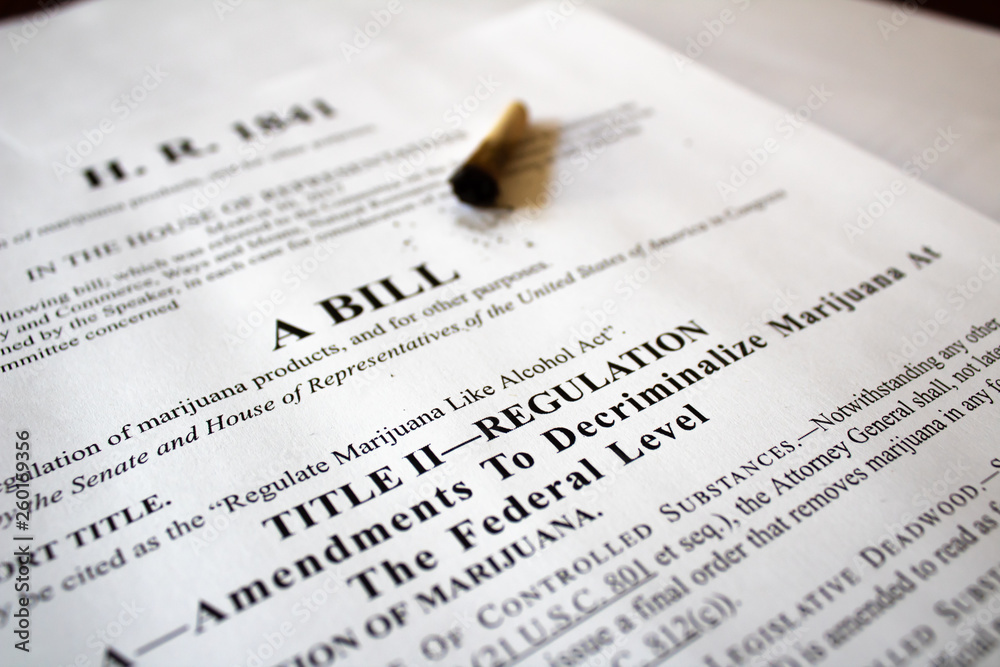 H. R. 1841
n of marijuana products, and for other
IN THE HOUSE OF REPRESENTATIVES
ollowing bill; which was referred to the
y and Commerce, Ways and Means, Natural
ned by the Speaker, in each case for
mmittee concerned
A BILL
egulation of marijuana products, and for other purposes.
by the Senate and House of Representatives of the United States of America in Congress
ORT TITLE.
y be cited as the “Regulate Marijuana Like Alcohol Act”
TITLE II—REGULATION
A—Amendments To Decriminalize Marijuana At
The Federal Level
ON OF MARIJUANA.
OF CONTROLLED SUBSTANCES.—Notwithstanding any other
(21 U.S.C. 801 et seq.), the Attorney General shall, not late
issue a final order that removes marijuana in any fo
C. 812(c)).
LEGISLATIVE DEADWOOD.—
is amended to read as
Adobe Stock | #260169356